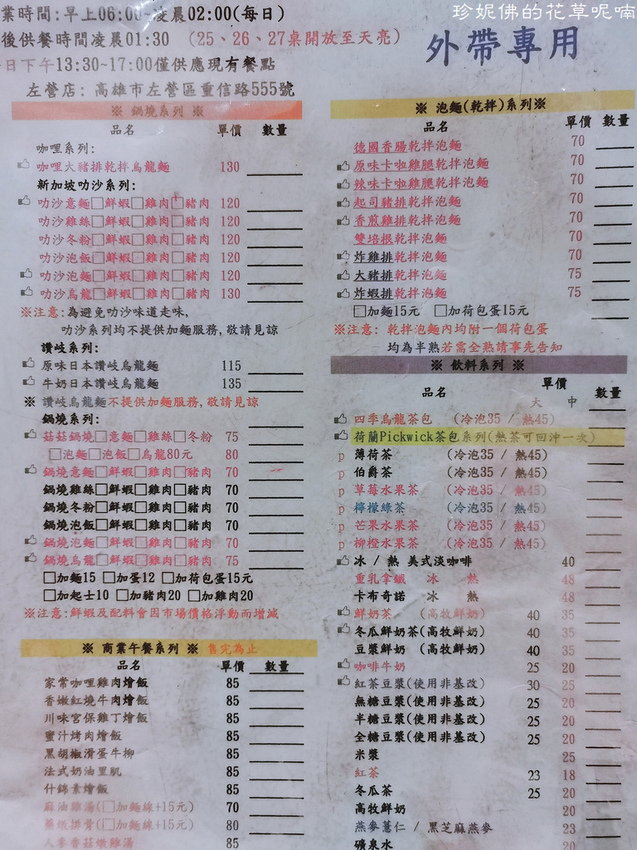 珍妮佛的花草呢喃
業時間:早上06:00~凌晨02:00(每日)
後供餐時間凌晨01:30 (25、26、27桌開放至天亮)
日下午13:30~17:00僅供應現有餐點
左營店: 高雄市左營區重信路555號
外帶專用
※ 鍋燒系列 ※
品名 單價 數量
咖哩系列:
咖哩大豬排乾拌烏龍麵 130
新加坡叻沙系列:
叻沙意麵□鮮蝦□雞肉□豬肉 120
叻沙雞絲□鮮蝦□雞肉□豬肉 120
叻沙冬粉□鮮蝦□雞肉□豬肉 120
叻沙泡飯□鮮蝦□雞肉□豬肉 120
叻沙泡麵□鮮蝦□雞肉□豬肉 120
叻沙烏龍□鮮蝦□雞肉□豬肉 130
※注意:為避免叻沙味道走味,
叻沙系列均不提供加麵服務,敬請見諒
讚岐系列:
原味日本讚岐烏龍麵 115
牛奶日本讚岐烏龍麵 135
※ 讚岐烏龍麵不提供加麵服務,敬請見諒
鍋燒系列:
菇菇鍋燒□意麵□雞絲□冬粉 75
□泡麵□泡飯□烏龍80元 80
鍋燒意麵□鮮蝦□雞肉□豬肉 70
鍋燒雞絲□鮮蝦□雞肉□豬肉 70
鍋燒冬粉□鮮蝦□雞肉□豬肉 70
鍋燒泡飯□鮮蝦□雞肉□豬肉 70
鍋燒泡麵□鮮蝦□雞肉□豬肉 70
鍋燒烏龍□鮮蝦□雞肉□豬肉 75
□加麵15 □加蛋12 □加荷包蛋15
□加起士10 □加豬肉20 □加雞肉20
※注意:鮮蝦及配料會因市場價格浮動而增減
※ 商業午餐系列 ※ 售完為止
品名 單價 數量
家常咖哩雞肉燴飯 85
香嫩紅燒牛肉燴飯 85
川味宮保雞丁燴飯 85
蜜汁烤肉燴飯 85
黑胡椒滑蛋牛柳 85
法式奶油里肌 85
什錦素燴飯 85
麻油雞湯(□加麵線+15元) 70
藥燉排骨(□加麵線+15元) 80
人參香菇燉雞湯 85
※ 泡麵(乾拌)系列※
品名 單價 數量
德國香腸乾拌泡麵 70
原味卡啦雞腿乾拌泡麵 70
辣味卡啦雞腿乾拌泡麵 70
起司豬排乾拌泡麵 70
香煎雞排乾拌泡麵 70
雙培根乾拌泡麵 70
炸雞排乾拌泡麵 70
大豬排乾拌泡麵 75
炸蝦排乾拌泡麵 75
□加麵15元 □加荷包蛋15元
※注意: 乾拌泡麵內均附一個荷包蛋
均為半熟若需全熟請事先告知
※ 飲料系列 ※
品名 單價 數量
大 中
四季烏龍茶包 (冷泡35 / 熱45)
荷蘭Pickwick茶包系列(熱茶可回沖一次)
p 薄荷茶 (冷泡35 / 熱45)
p 伯爵茶 (冷泡35 / 熱45)
p 草莓水果茶 (冷泡35 / 熱45)
p 檸檬綠茶 (冷泡35 / 熱45)
p 芒果水果茶 (冷泡35 / 熱45)
p 柳橙水果茶 (冷泡35 / 熱45)
冰 / 熱 美式淡咖啡 40
重乳拿鐵 冰 熱 48
卡布奇諾 冰 熱 48
鮮奶茶 (高牧鮮奶) 40 35
冬瓜鮮奶茶(高牧鮮奶) 40 35
豆漿鮮奶 (高牧鮮奶) 40 35
咖啡牛奶 25 20
紅茶豆漿(使用非基改) 30 25
無糖豆漿(使用非基改) 25 20
半糖豆漿(使用非基改) 25 20
全糖豆漿(使用非基改) 25 20
米漿 25 20
紅茶 23 18
冬瓜茶 25 20
高牧鮮奶 20
燕麥薏仁 / 黑芝麻燕麥 23
礦泉水 20